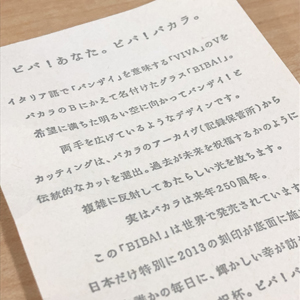 ビバ！あなた。ビバ！バカラ。
イタリア語で「バンザイ」を意味する「VIVA」のVを
バカラのBにかえて名付けたグラス「BIBA!」。
希望に満ちた明るい空に向かってバンザイ！と
両手を広げているようなデザインです。
カッティングは、バカラのアーカイヴ（記録保管所）から
伝統的なカットを選出。過去が未来を祝福するかのように
複雑に反射してあたらしい光を放ちます。
実はバカラは来年250周年。
この「BIBA!」は世界で発売されています
日本だけ特別に2013の刻印が底面に施
かの毎日に、輝かしい幸が訪
杯。ビバ！バ